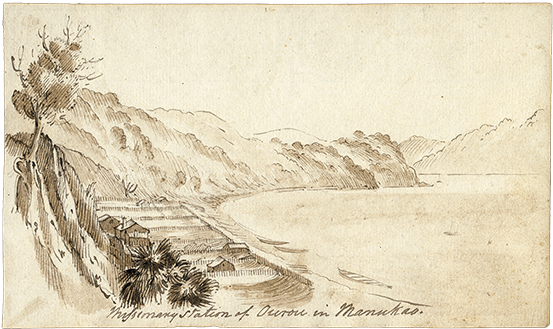 Missionary Station of Ourou in Manukao.